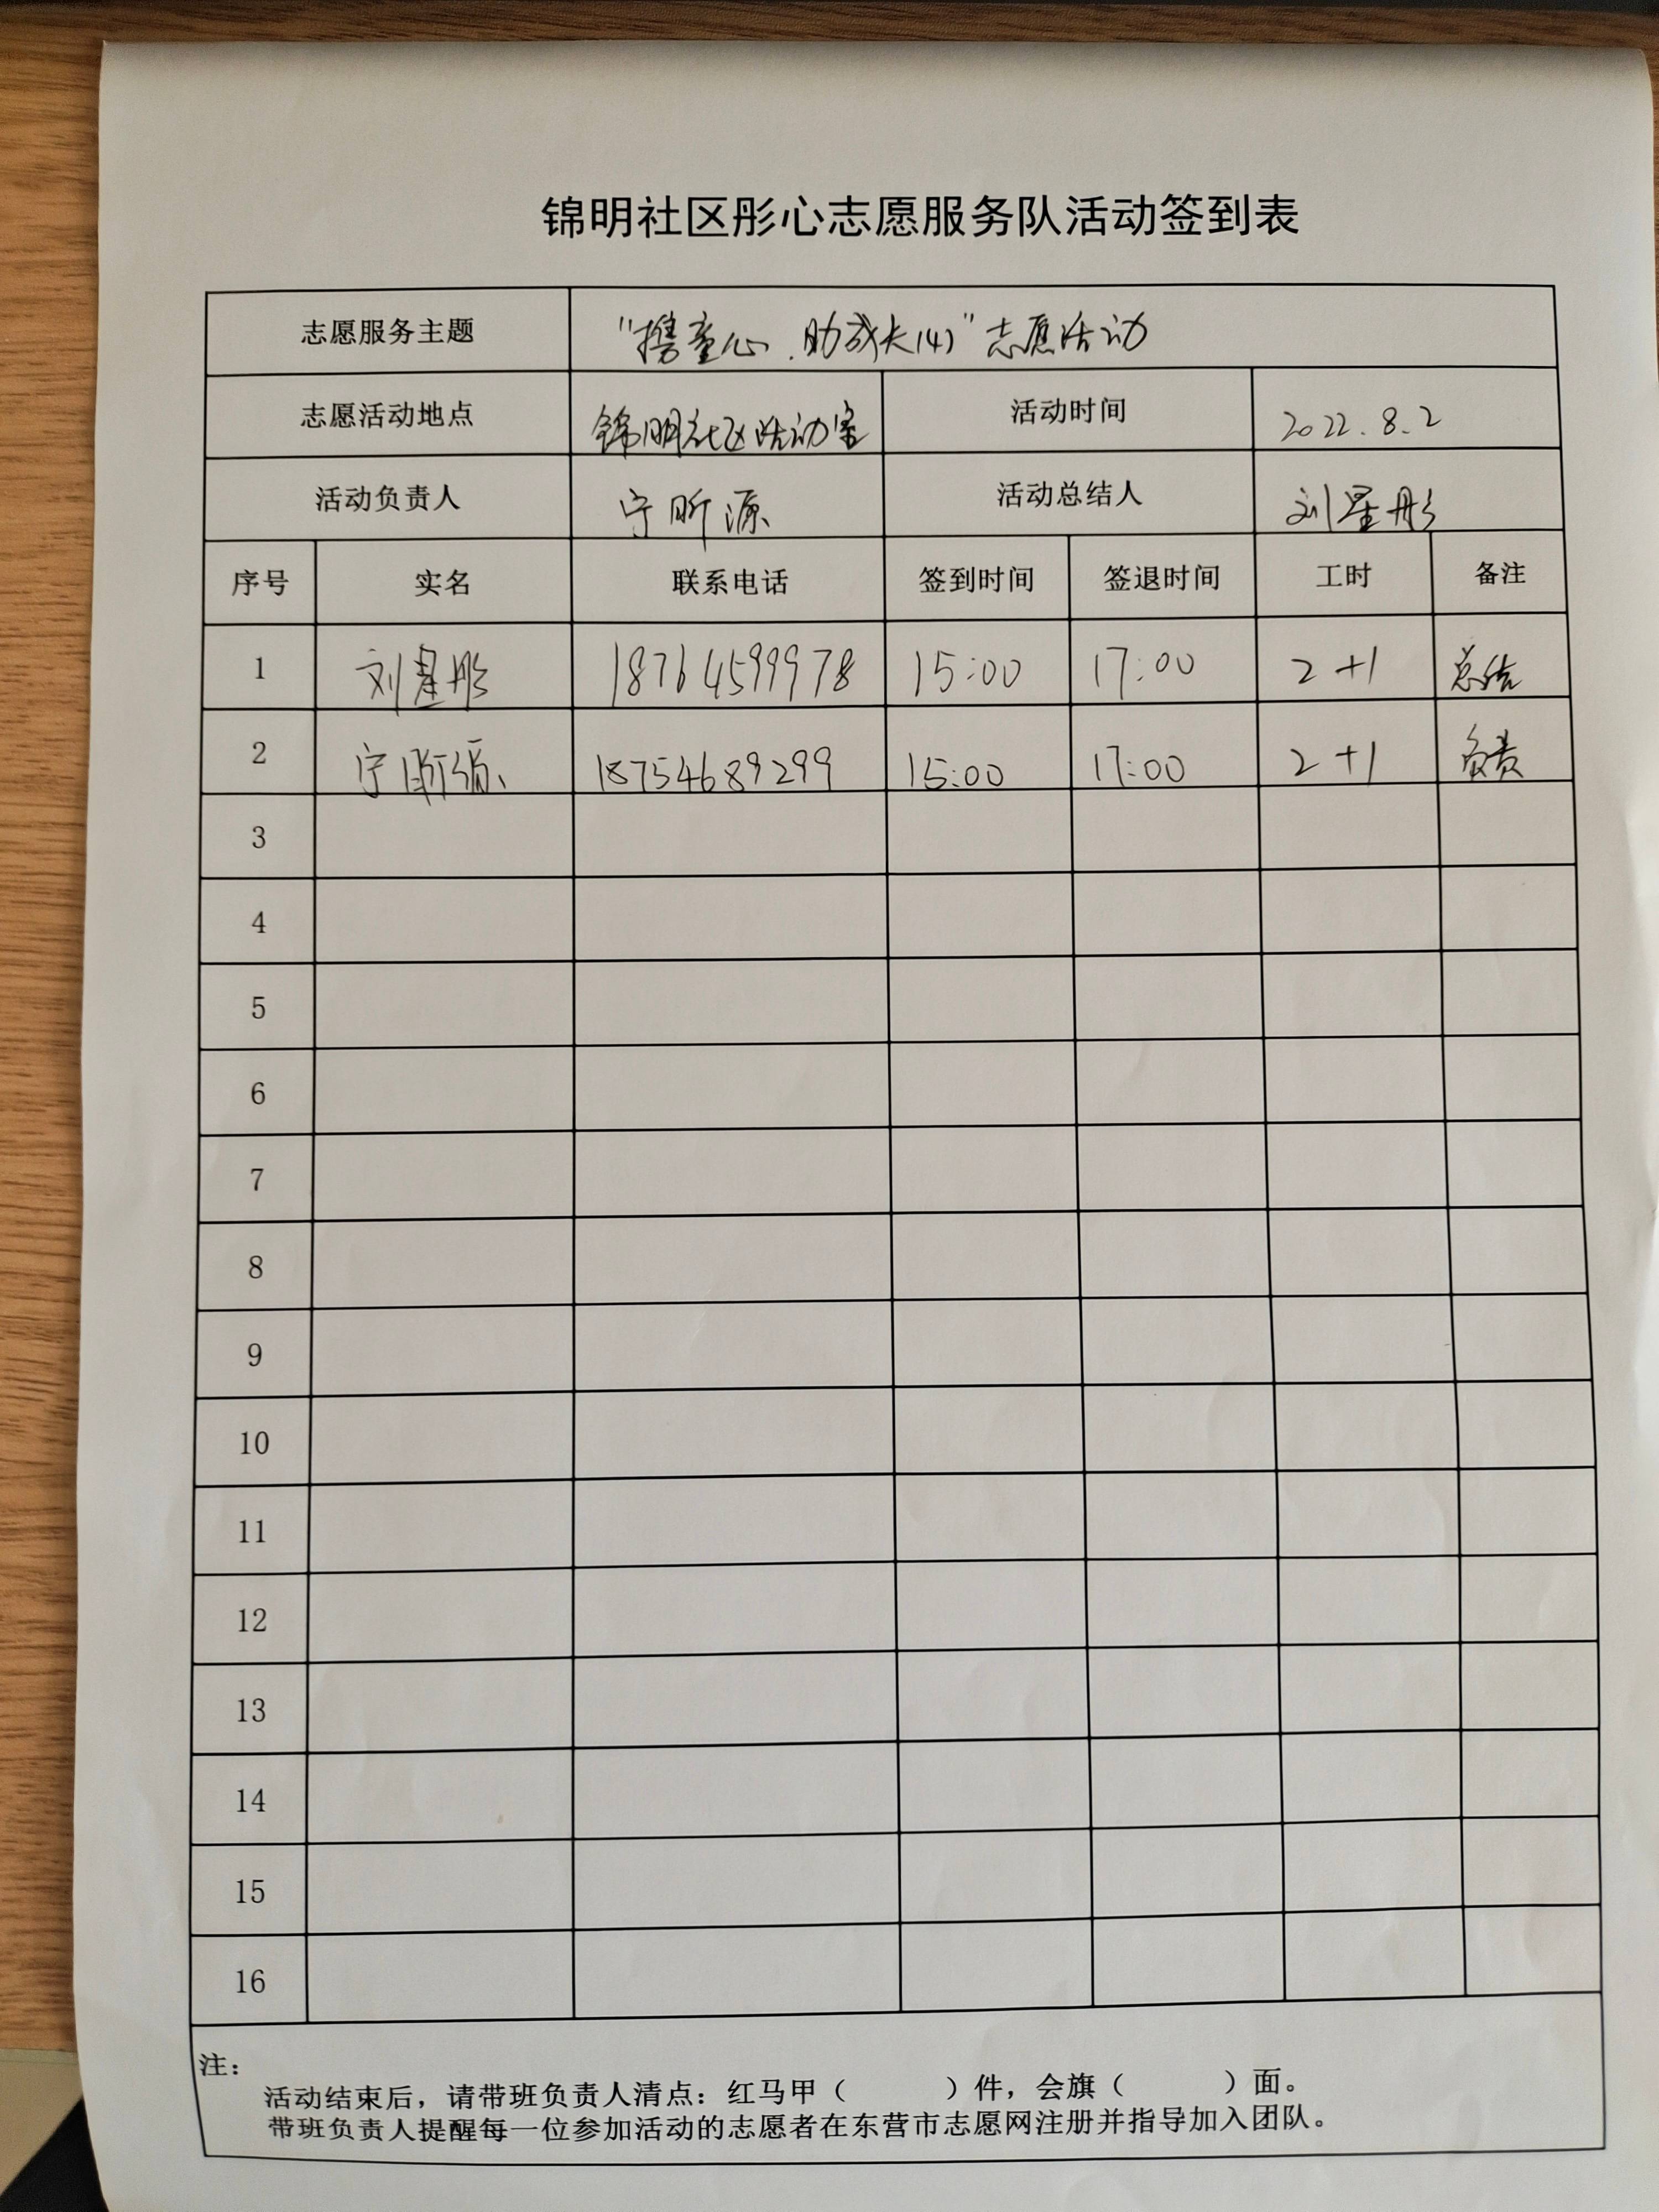 锦明社区彤心志愿服务队活动签到表
志愿服务主题 "携童心.助成长(4)"志愿活动
志愿活动地点 锦明社区活动室 活动时间 2022.8.2
活动负责人 宁昕源 活动总结人 刘星彤
序号 实名 联系电话 签到时间 签退时间 工时 备注
1 刘星彤 18764599978 15:00 17:00 2+1 总结
2 宁昕源 18754689299 15:00 17:00 2+1 负责
3
4
5
6
7
8
9
10
11
12
13
14
15
16
注：
活动结束后，请带班负责人清点：红马甲（ ）件，会旗（ ）面。
带班负责人提醒每一位参加活动的志愿者在东营市志愿网注册并指导加入团队。